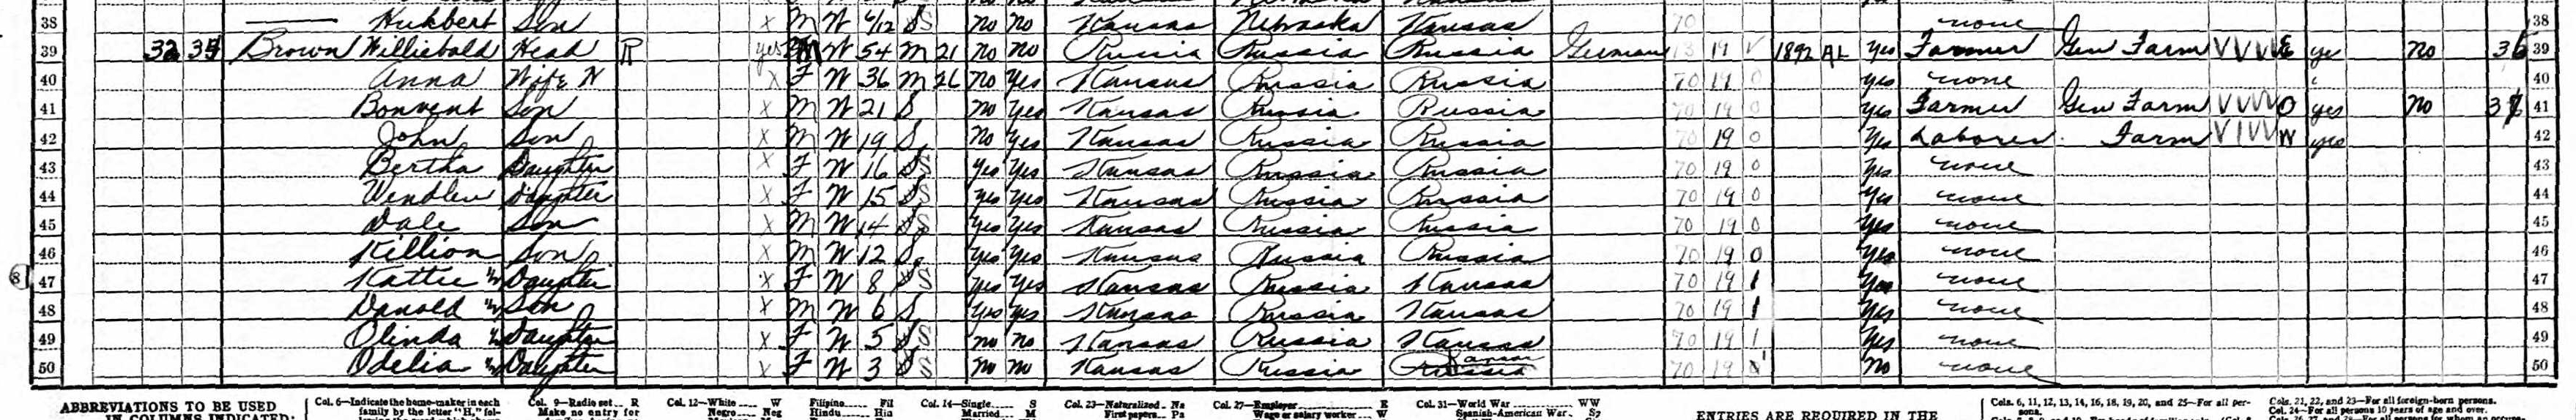 38 Hukbert Son X M W 6/12 S S no no Kansas Nebraska Kansas 70 none 38
39 32 34 Brown Williebald Head R yes M W 54 M 21 no No Russia Russia Russia German 13 19 V 1892 AL Yes Farmer Gen Farm VVVV E ye No 36 39
40 Anna Wife H X F W 36 M 26 No Yes Kansas Russia Russia 70 19 0 yes none 40
41 Bonvent Son X M W 21 S No Yes Kansas Russia Russia 70 19 0 yes Farmer Gen Farm VVVV O yes No 37 41
42 John Son X M W 19 S No Yes Kansas Russia Russia 70 19 0 Yes Laborer Farm V1VV W yes 42
43 Bertha Daughter X F W 16 S S Yes Yes Kansas Russia Russia 70 19 0 Yes none 43
44 Wendlen Daughter X F W 15 S S yes Yes Kansas Russia Russia 70 19 0 Yes none 44
45 Dale Son X M W 14 S S Yes Yes Kansas Russia Russia 70 19 0 Yes none 45
46 Killion Son X M W 12 S Yes Yes Kansas Russia Russia 70 19 0 Yes none 46
8 47 Kattie Daughter X F W 8 S S Yes Yes Kansas Russia Kansas 70 19 1 Yes none 47
48 Danold Son X M W 6 S Yes yes Kansas Russia Kansas 70 19 1 Yes none 48
49 Olinda Daughter X F W 5 S S no No Kansas Russia Kansas 70 19 1 Yes none 49
50 Odelia Daughter X F W 3 S S No No Kansas Russia Russia 70 19 1 No none 50
ABBREVIATIONS TO BE USED Col. 6—Indicate the home-maker in each Col. 9—Radio set R Col. 12—White W Filipino Fil Col. 14—Single S Col. 23—Naturalized Na Col. 27—Employer E Col. 31—World War WW Cols. 6, 11, 12, 13, 14, 16, 18, 19, 20, and 25—For all per- Cols. 21, 22, and 23—For all foreign-born persons.
IN COLUMNS INDICATED: family by the letter "H," fol- Make no entry for Negro Neg Hindu Hin Married M First papers Pa Wage or salary worker W Spanish-American War Sp ENTRIES ARE REQUIRED IN THE sons. Col. 24—For all persons 10 years of age and over.